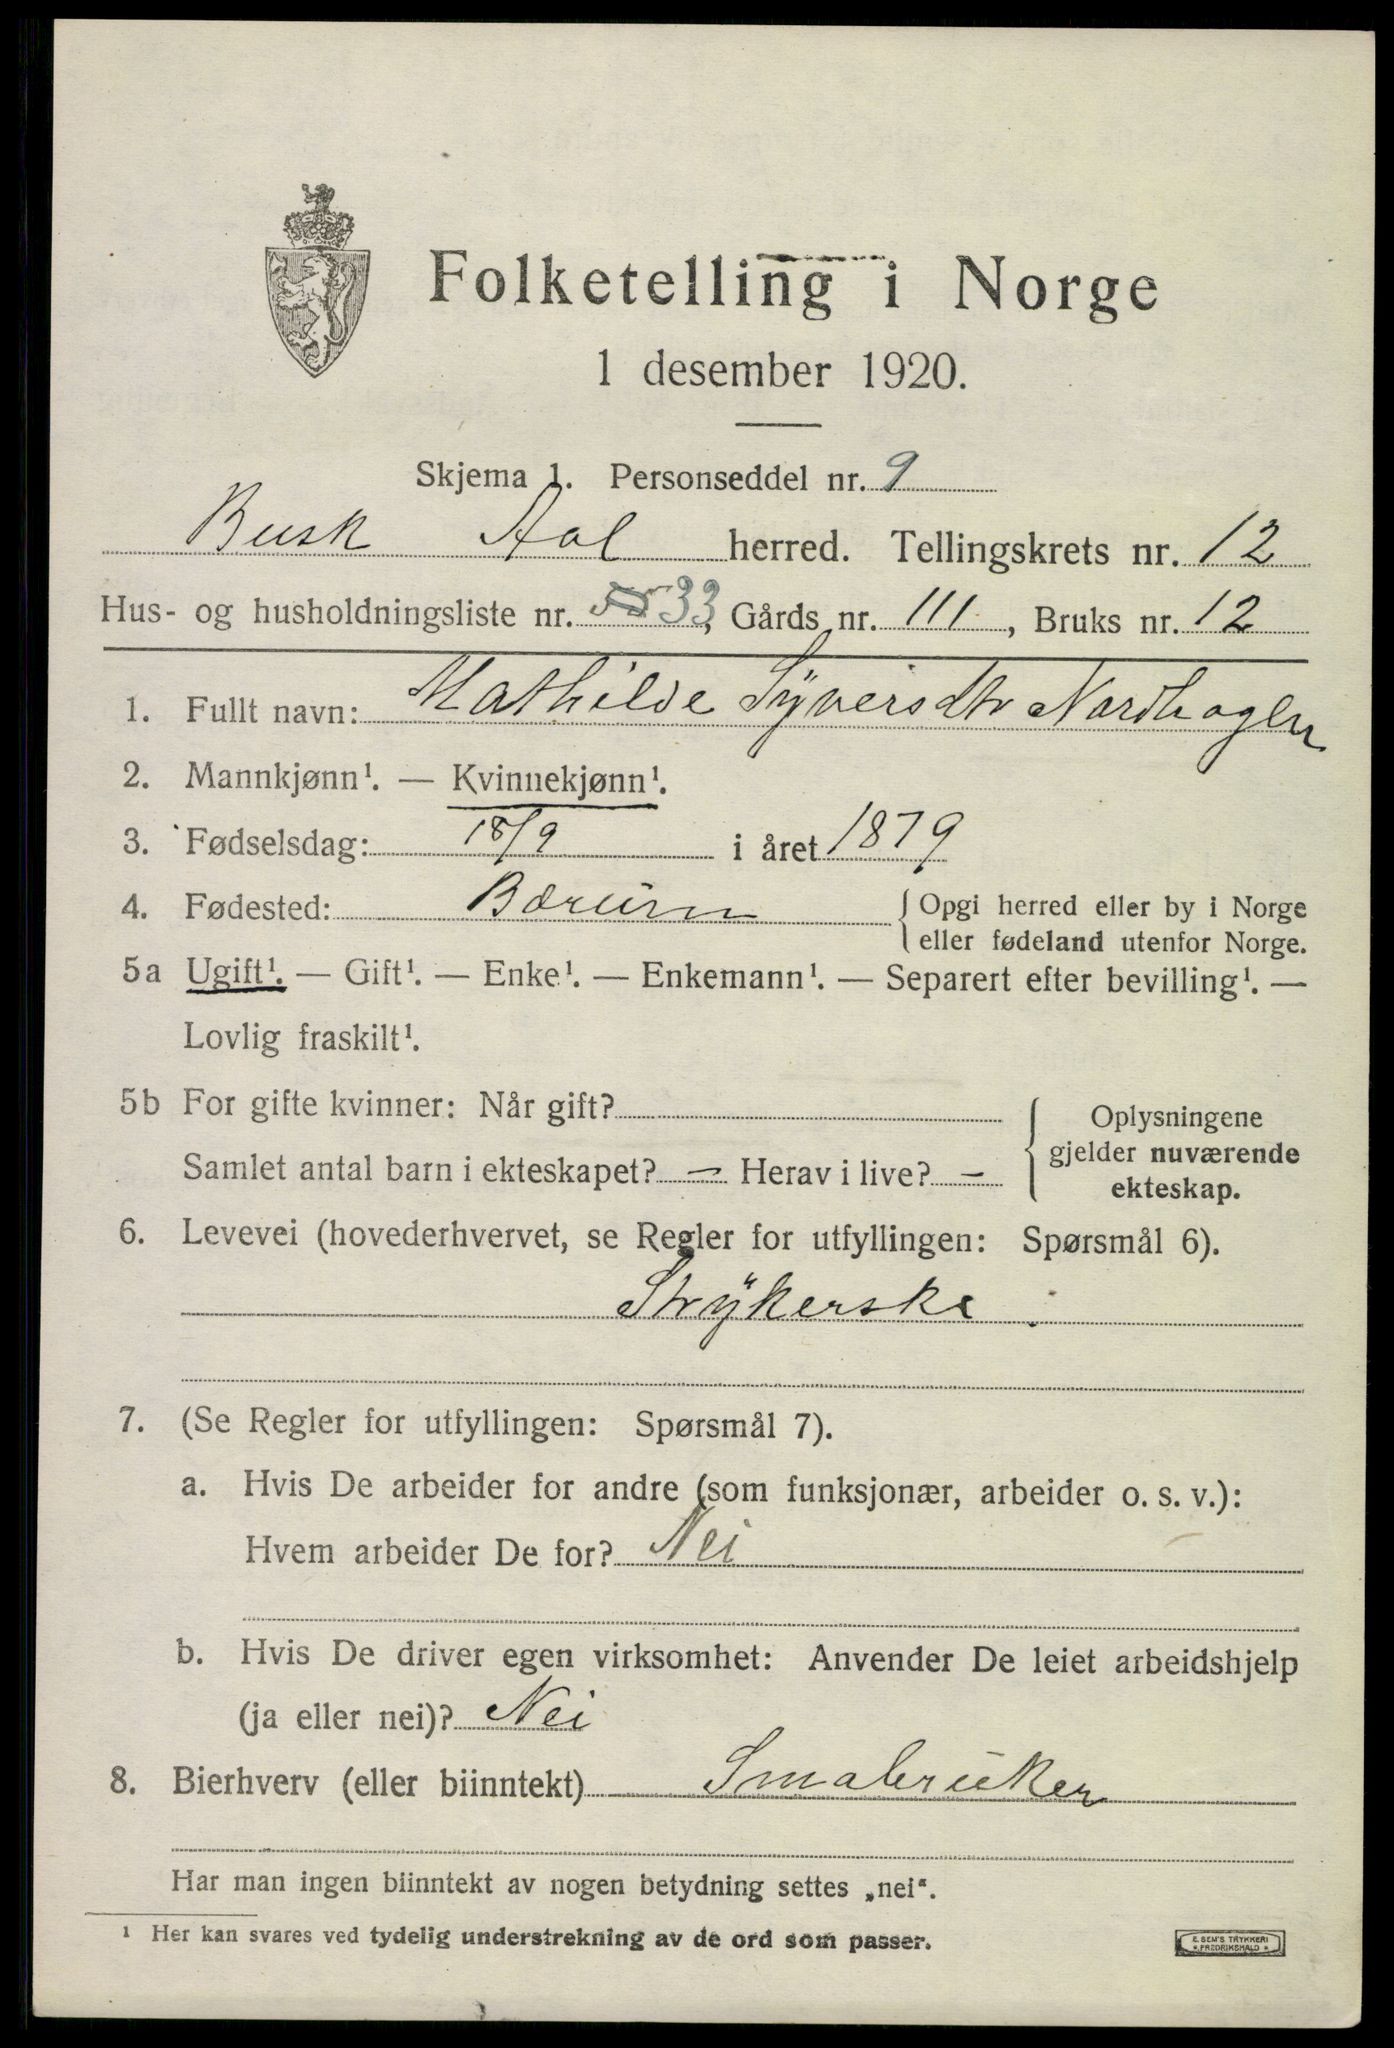 Folketelling i Norge
1 desember 1920.
Skjema 1. Personseddel nr. 9
Busk Aal herred. Tellingskrets nr. 12
Hus- og husholdningsliste nr. 33, Gårds nr. 111, Bruks nr. 12
1. Fullt navn: Mathilde Syversdtr Nordhagen
2. Mannkjønn¹. — Kvinnekjønn¹.
3. Fødselsdag: 18/9 i året 1879
4. Fødested: Bærum { Opgi herred eller by i Norge
eller fødeland utenfor Norge.
5a Ugift¹. — Gift¹. — Enke¹. — Enkemann¹. — Separert efter bevilling¹. —
Lovlig fraskilt¹.
5b For gifte kvinner: Når gift?
Samlet antal barn i ekteskapet? — Herav i live? —
Oplysningene
gjelder nuværende
ekteskap.
6. Levevei (hovederhvervet, se Regler for utfyllingen: Spørsmål 6).
Strÿkerske
7. (Se Regler for utfyllingen: Spørsmål 7).
a. Hvis De arbeider for andre (som funksjonær, arbeider o. s. v.):
Hvem arbeider De for? Nei
b. Hvis De driver egen virksomhet: Anvender De leiet arbeidshjelp
(ja eller nei)? Nei
8. Bierhverv (eller biinntekt) Smabruker
Har man ingen biinntekt av nogen betydning settes „nei“.
¹ Her kan svares ved tydelig understrekning av de ord som passer.
E. SEM'S TRYKKERI
* FREDRIKSHALD *